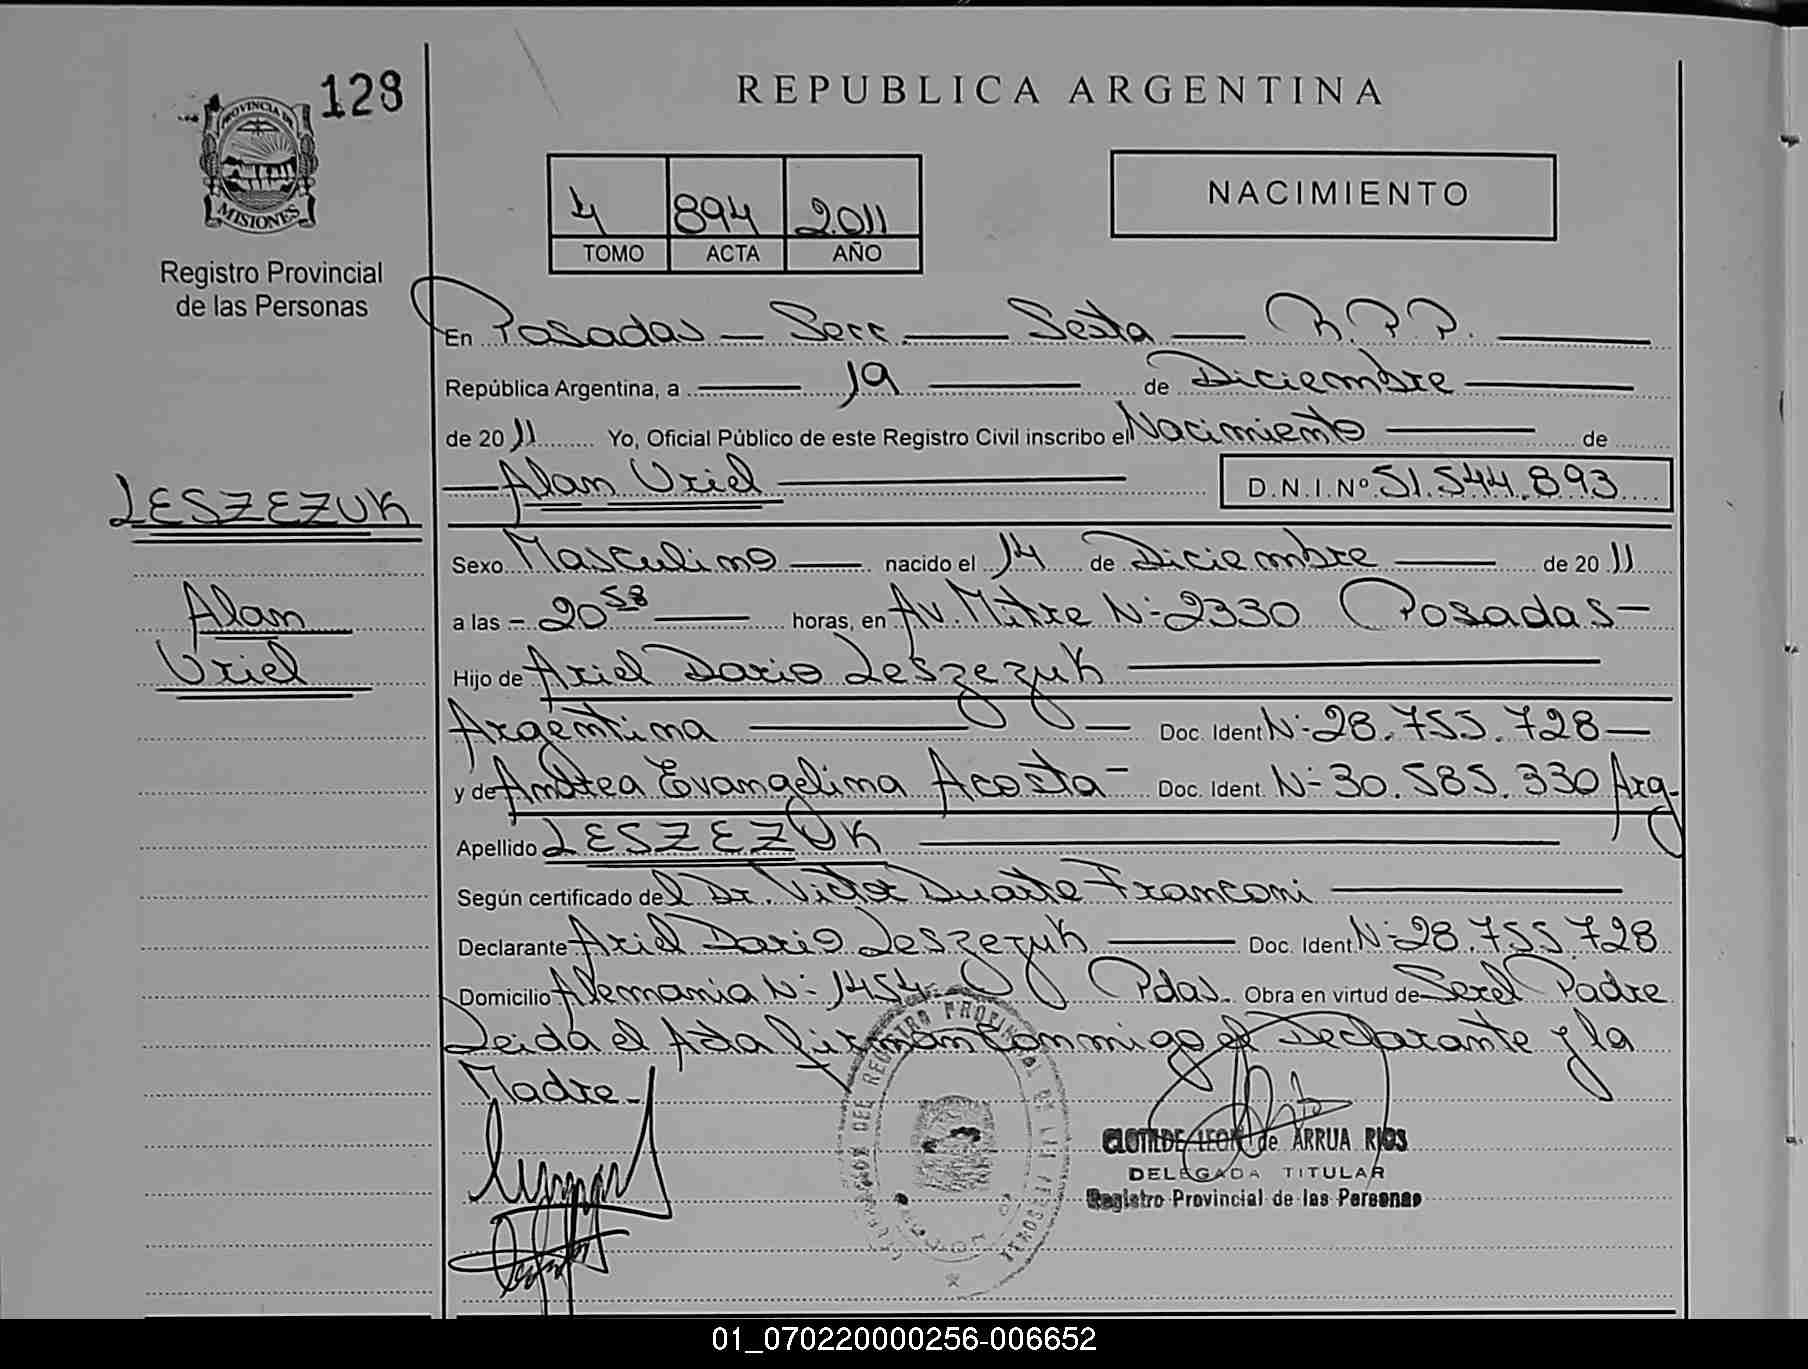 128
PROVINCIA DE
MISIONES
Registro Provincial
de las Personas
REPUBLICA ARGENTINA
4 894 2.011
TOMO ACTA AÑO
NACIMIENTO
En Posadas — Secc. — Sexta — R.P.P.
República Argentina, a 19 de Diciembre
de 2011 Yo, Oficial Público de este Registro Civil inscribo el Nacimiento de
Alan Uriel D.N.I.Nº 51.544.893
LESZEZUK
Alan
Uriel
Sexo Masculino nacido el 14 de Diciembre de 2011
a las - 20 58 horas, en Av. Mitre N-2330 Posadas-
Hijo de Ariel Dario Leszezuk
Argentina Doc. Ident N-28.755.728-
y de Andrea Evangelina Acosta- Doc. Ident. N-30.585.330 Arg-
Apellido LESZEZUK
Según certificado del Dr. Victor Duarte Franconi
Declarante Ariel Dario Leszezuk Doc. Ident N-28.755.728
Domicilio Alemania N-1454 Pdas. Obra en virtud de Ser el Padre
Leida el Acta firman conmigo el Declarante y la
Madre-
CLOTILDE LEON de ARRUA RIOS
DELEGADA TITULAR
Registro Provincial de las Personas
01_070220000256-006652